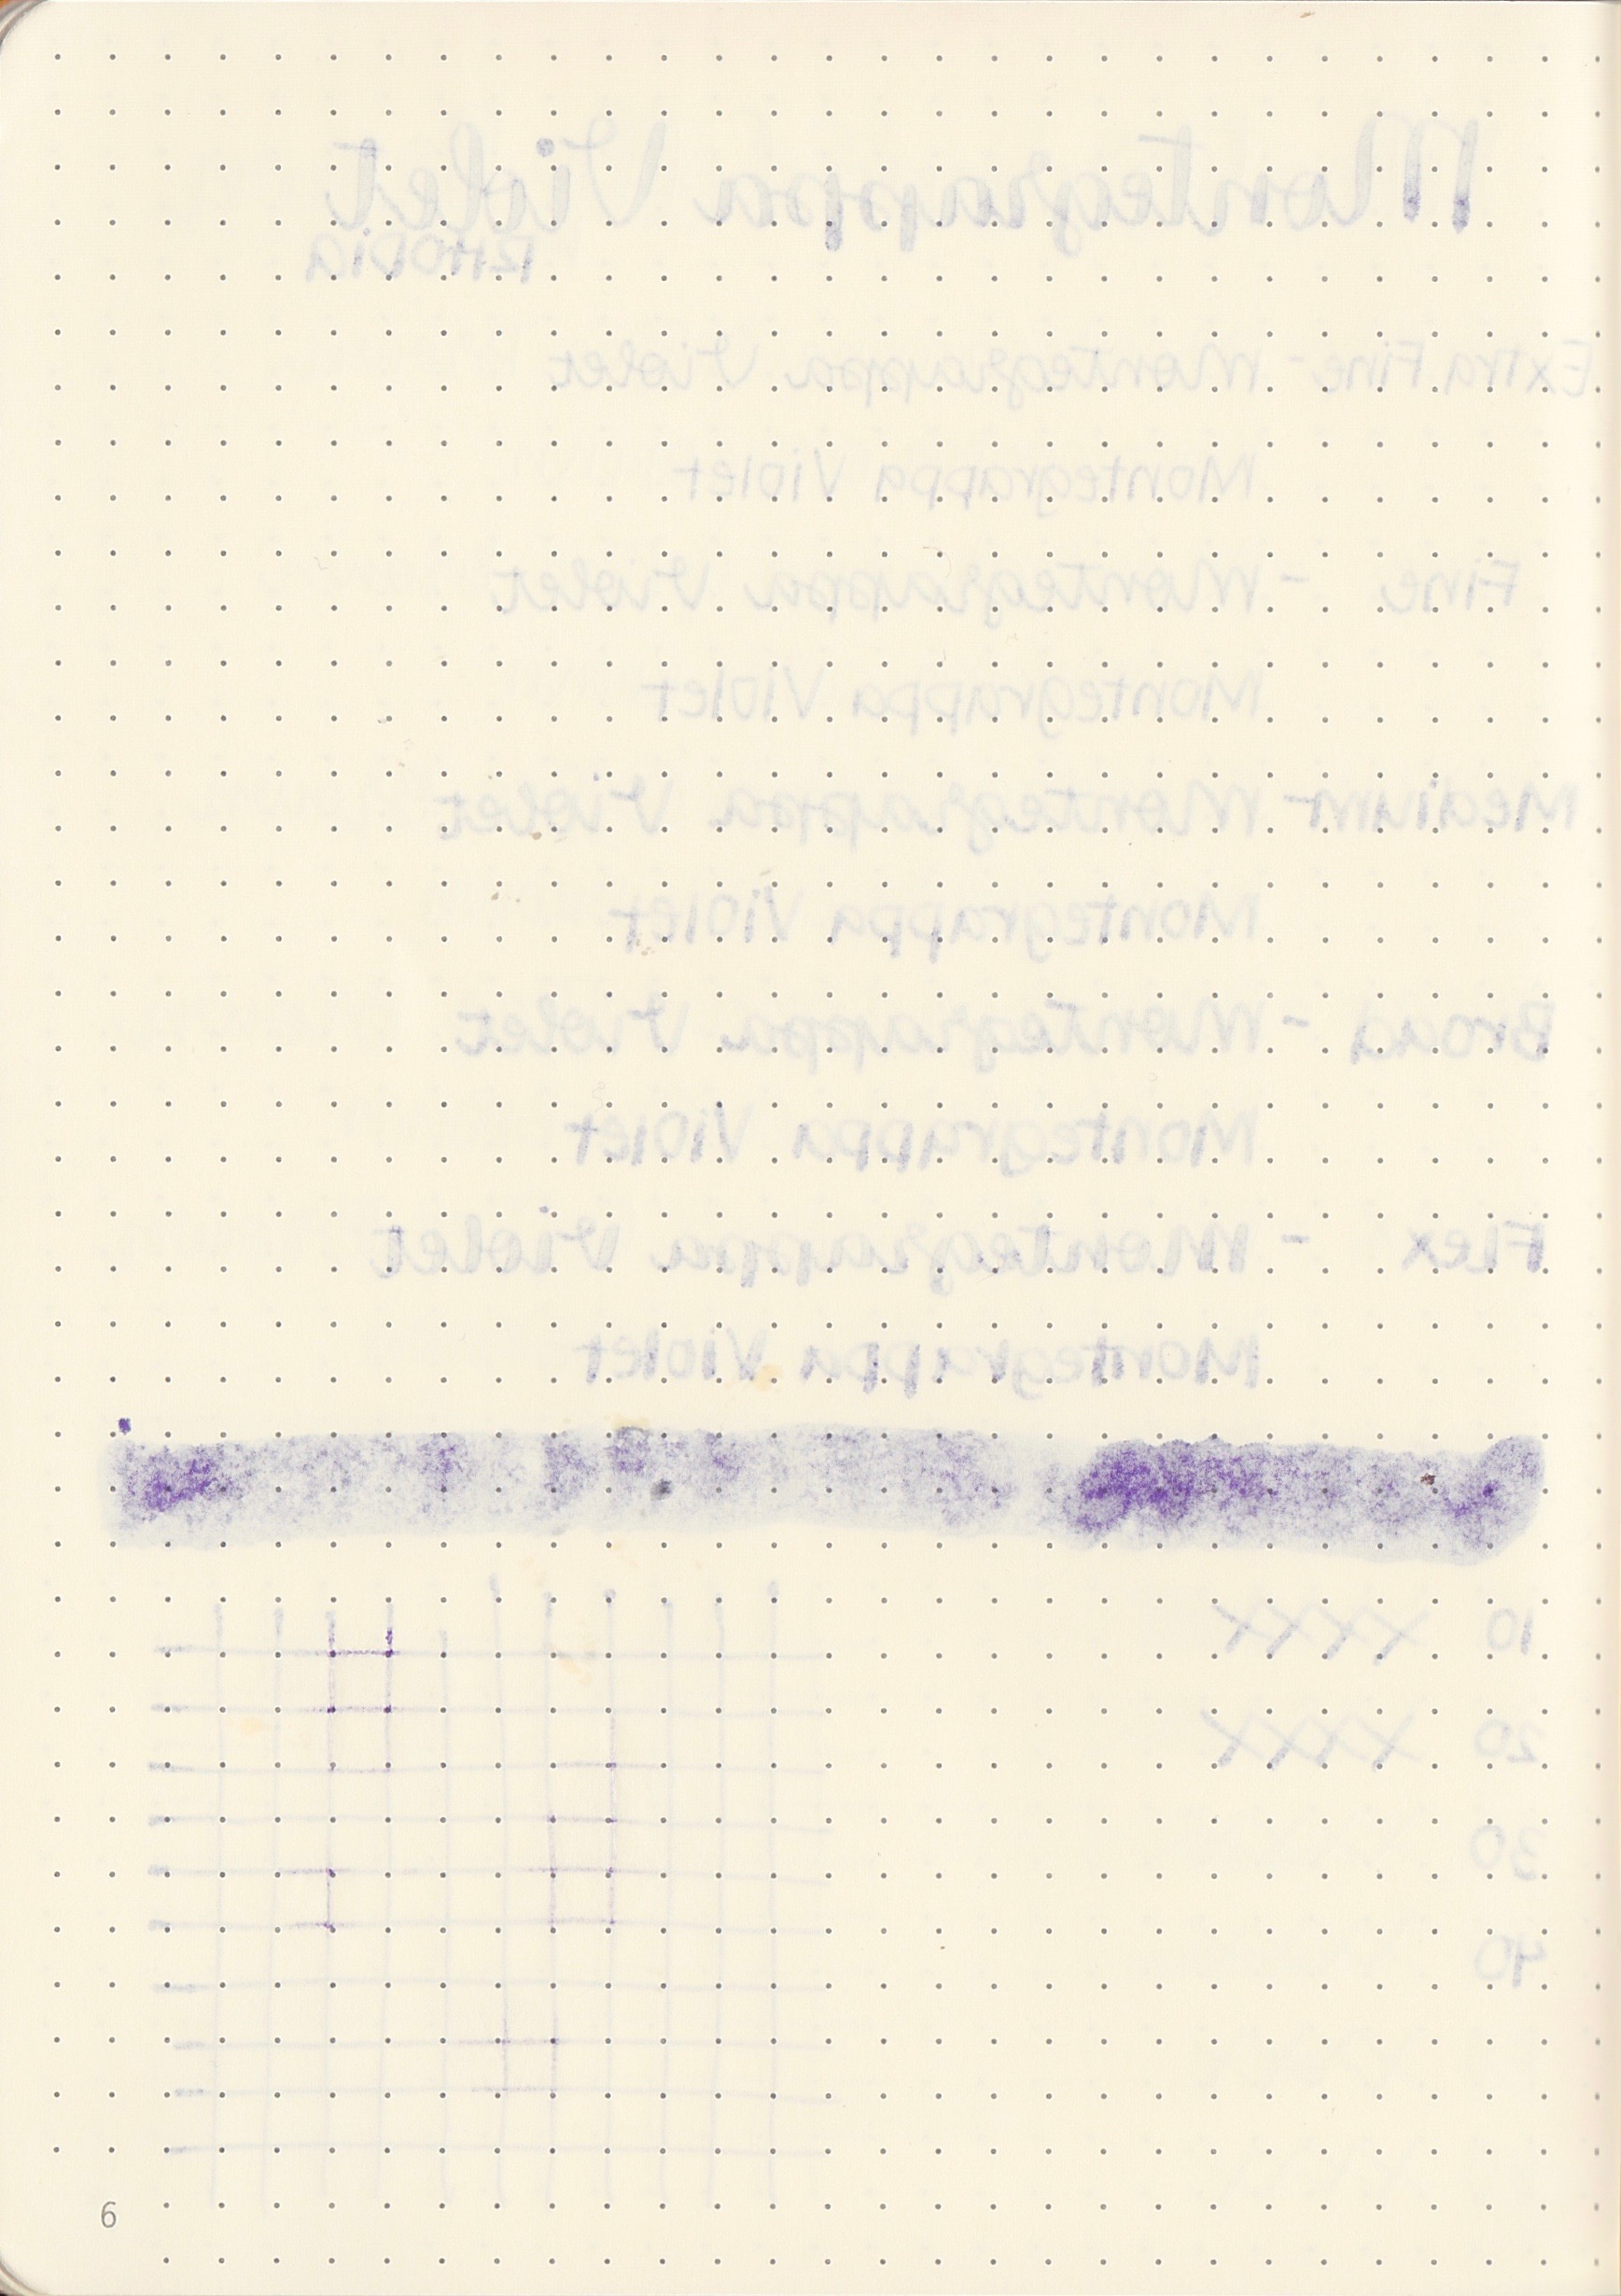 Montegrappa Violet
RHODIA
Extra Fine - Montegrappa Violet
Montegrappa Violet
Fine - Montegrappa Violet
Montegrappa Violet
Medium - Montegrappa Violet
Montegrappa Violet
Broad - Montegrappa Violet
Montegrappa Violet
Flex - Montegrappa Violet
Montegrappa Violet
10 XXXX
20 XXXX
30
40
6